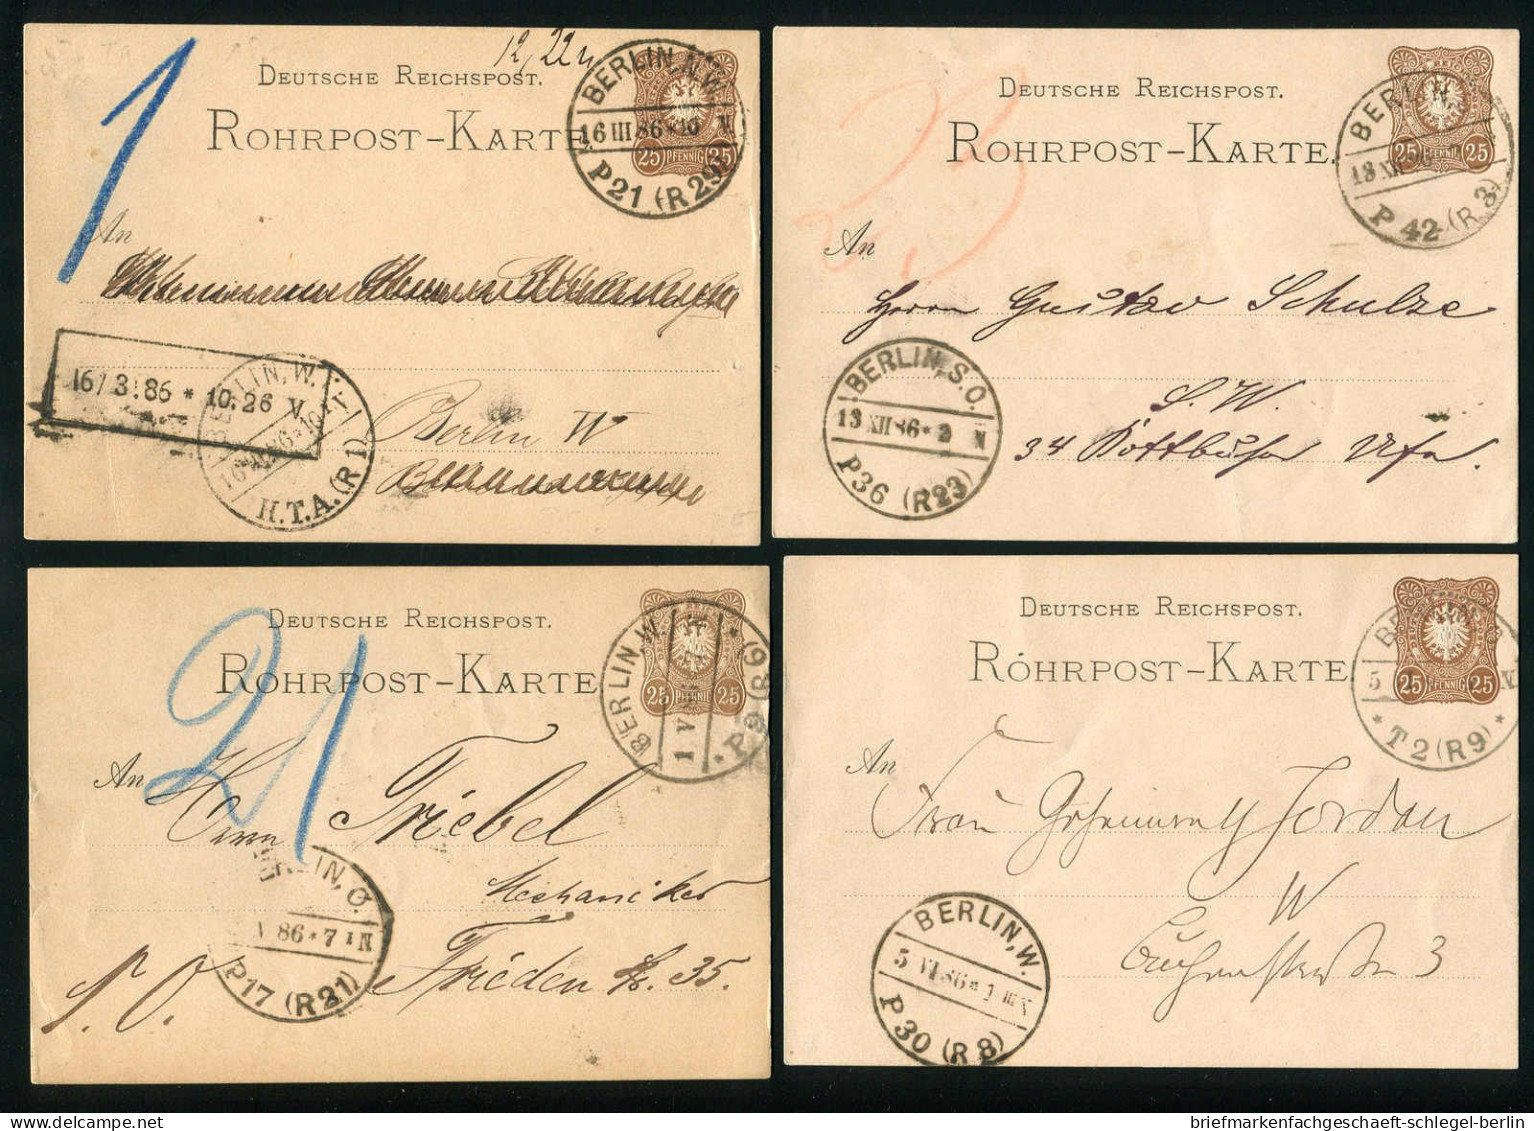 1
12,22 n
DEUTSCHE REICHSPOST.
ROHRPOST-KARTE.
25 PFENNIG 25
BERLIN, N.W.
16 III 86 * 10 V
P21 (R 29)
An
16/3.86 * 10.26 V.
BERLIN, W.
H.T.A. (R 1)
Berlin W
23
DEUTSCHE REICHSPOST.
ROHRPOST-KARTE.
25 PFENNIG 25
BERLIN
13 XII
P 42 (R 3)
An
Herrn Gustav Schulze
S. W.
34 Kottbuser Ufer.
BERLIN, S.O.
13 XII 86 * 2 N
P36 (R23)
21
DEUTSCHE REICHSPOST.
ROHRPOST-KARTE
25 PFENNIG 25
BERLIN, W.
1 V
P.9 (R 6)
An
Herrn Triebel
Mechaniker
S. O. Frieden Str. 35.
BERLIN, O.
V 86 * 7 1 N
P17 (R21)
DEUTSCHE REICHSPOST.
ROHRPOST-KARTE
25 PFENNIG 25
BERLIN
5 V
* T 2 (R9) *
An
Frau Geheimrath Jordan
W
3
BERLIN, W.
5 VI 86 * 1
P 30 (R 8)
briefmarkenfachgeschaeft-schlegel-berlin